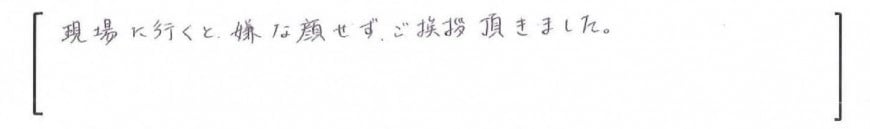 現場に行くと、嫌な顔せず、ご挨拶頂きました。